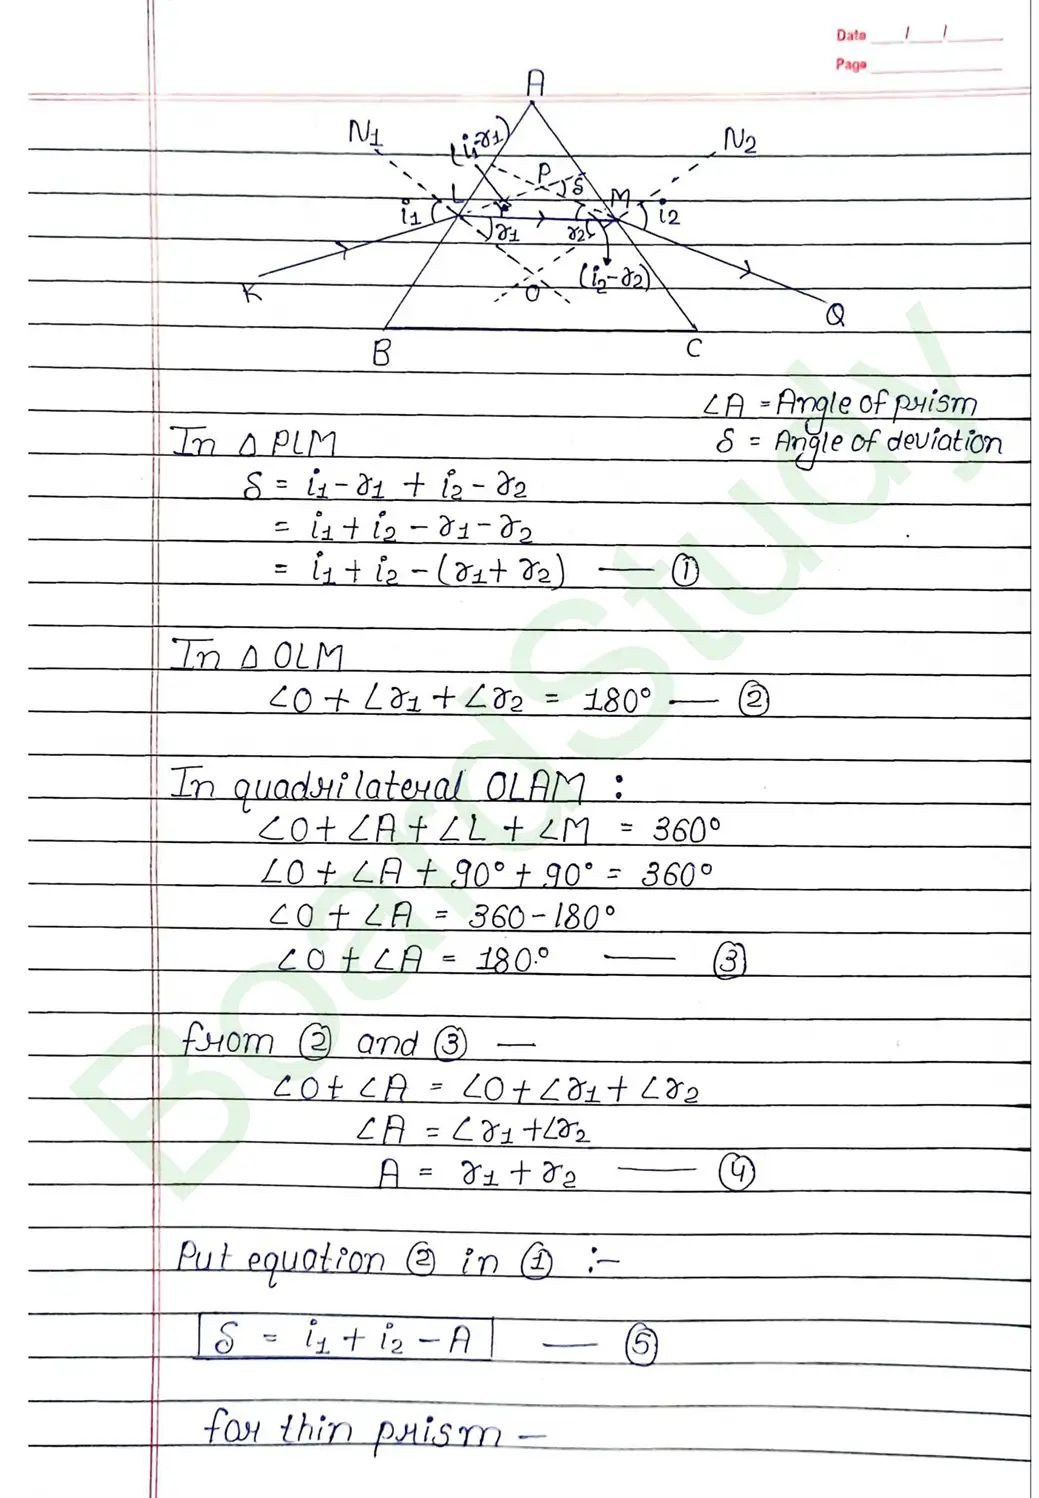 Date / /
Page
A
N1
N2
(i1-r1)
P
δ
L
M
i1
r1
r2
i2
K
O
(i2-r2)
Q
B
C
∠A = Angle of prism
δ = Angle of deviation
In △ PLM
δ = i1-r1 + i2-r2
= i1 + i2 - r1 - r2
= i1 + i2 - (r1 + r2) — ①
In △ OLM
∠O + ∠r1 + ∠r2 = 180° — ②
In quadrilateral OLAM :
∠O + ∠A + ∠L + ∠M = 360°
∠O + ∠A + 90° + 90° = 360°
∠O + ∠A = 360-180°
∠O + ∠A = 180° — ③
from ② and ③ —
∠O + ∠A = ∠O + ∠r1 + ∠r2
∠A = ∠r1 + ∠r2
A = r1 + r2 — ④
Put equation ② in ① :-
δ = i1 + i2 - A — ⑤
for thin prism -
BoardStudy